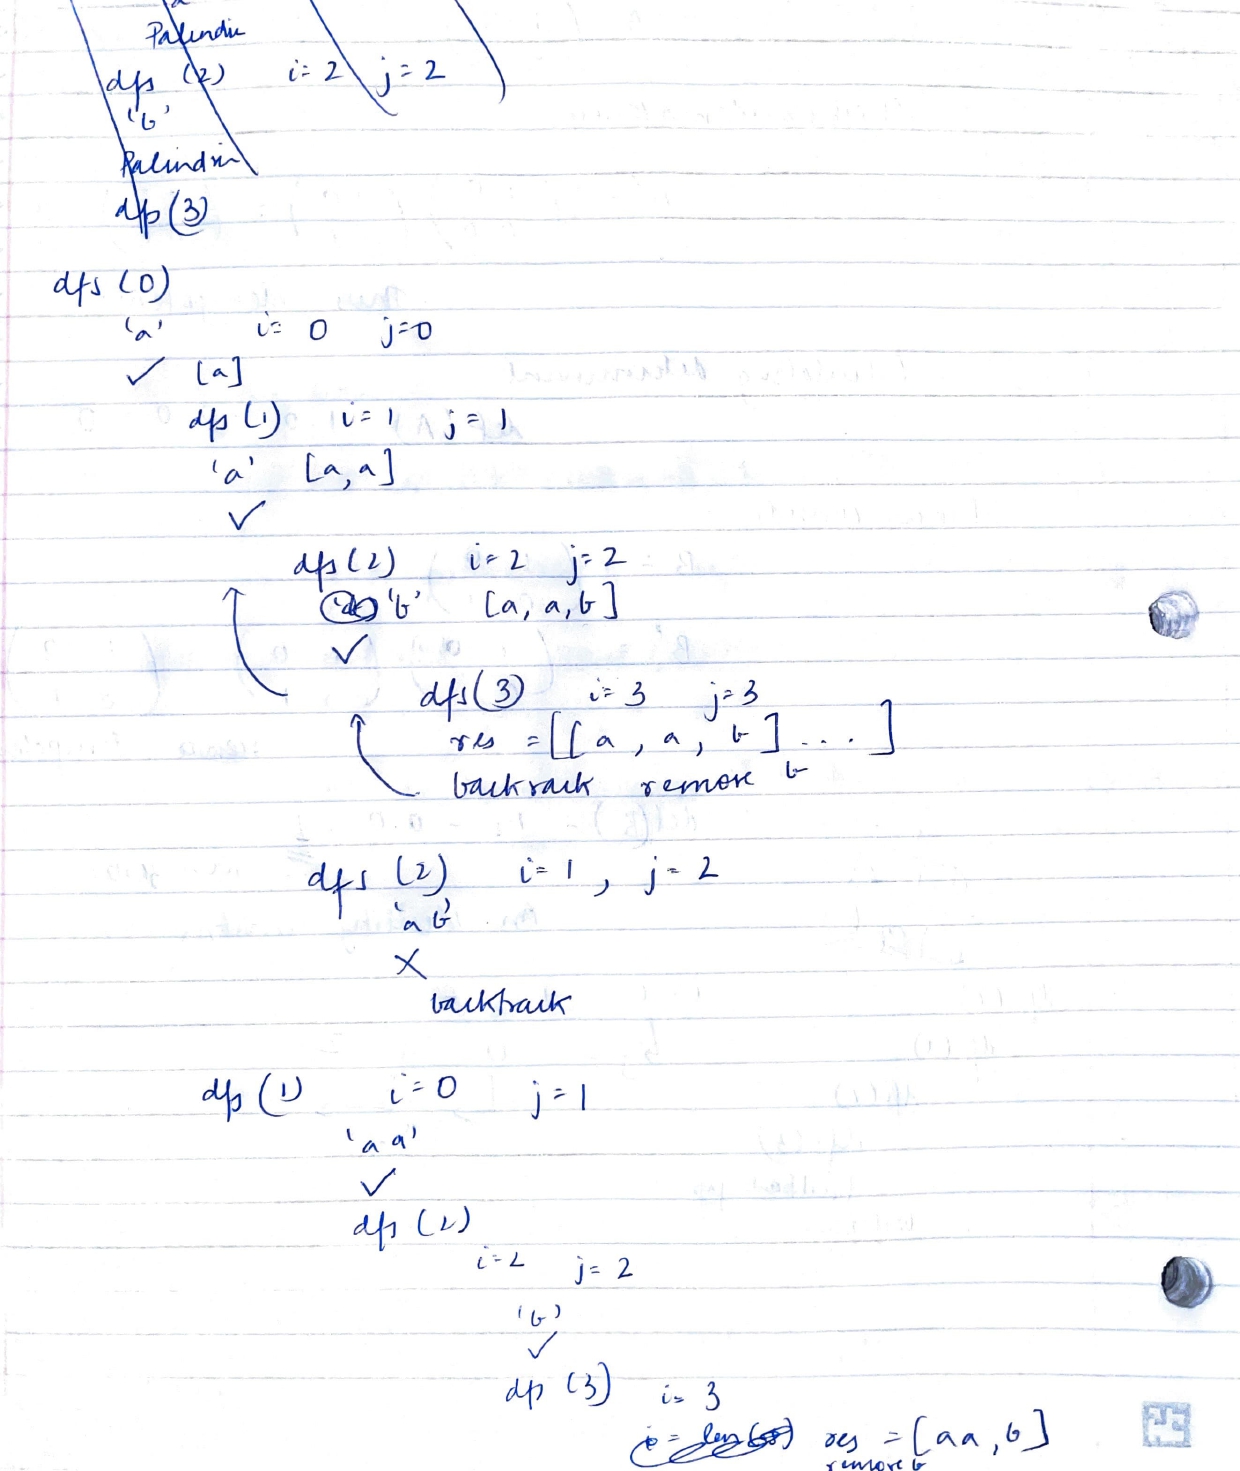 Palindr
dfs (2) i= 2 j= 2
'b'
Palindr
dfs (3)
dfs (0)
'a' i= 0 j=0
✓ [a]
dfs (1) i=1 j=1
'a' [a,a]
✓
dfs (2) i=2 j=2
'b' [a, a, b]
✓
dfs(3) i=3 j=3
res =[[a, a, b]...]
backrack remove b
dfs (2) i=1, j=2
'ab'
X
backtrack
dfs (1) i=0 j=1
'aa'
✓
dfs (2)
i=2 j=2
'b'
✓
dfs (3) i= 3
res =[aa,b]
remove b